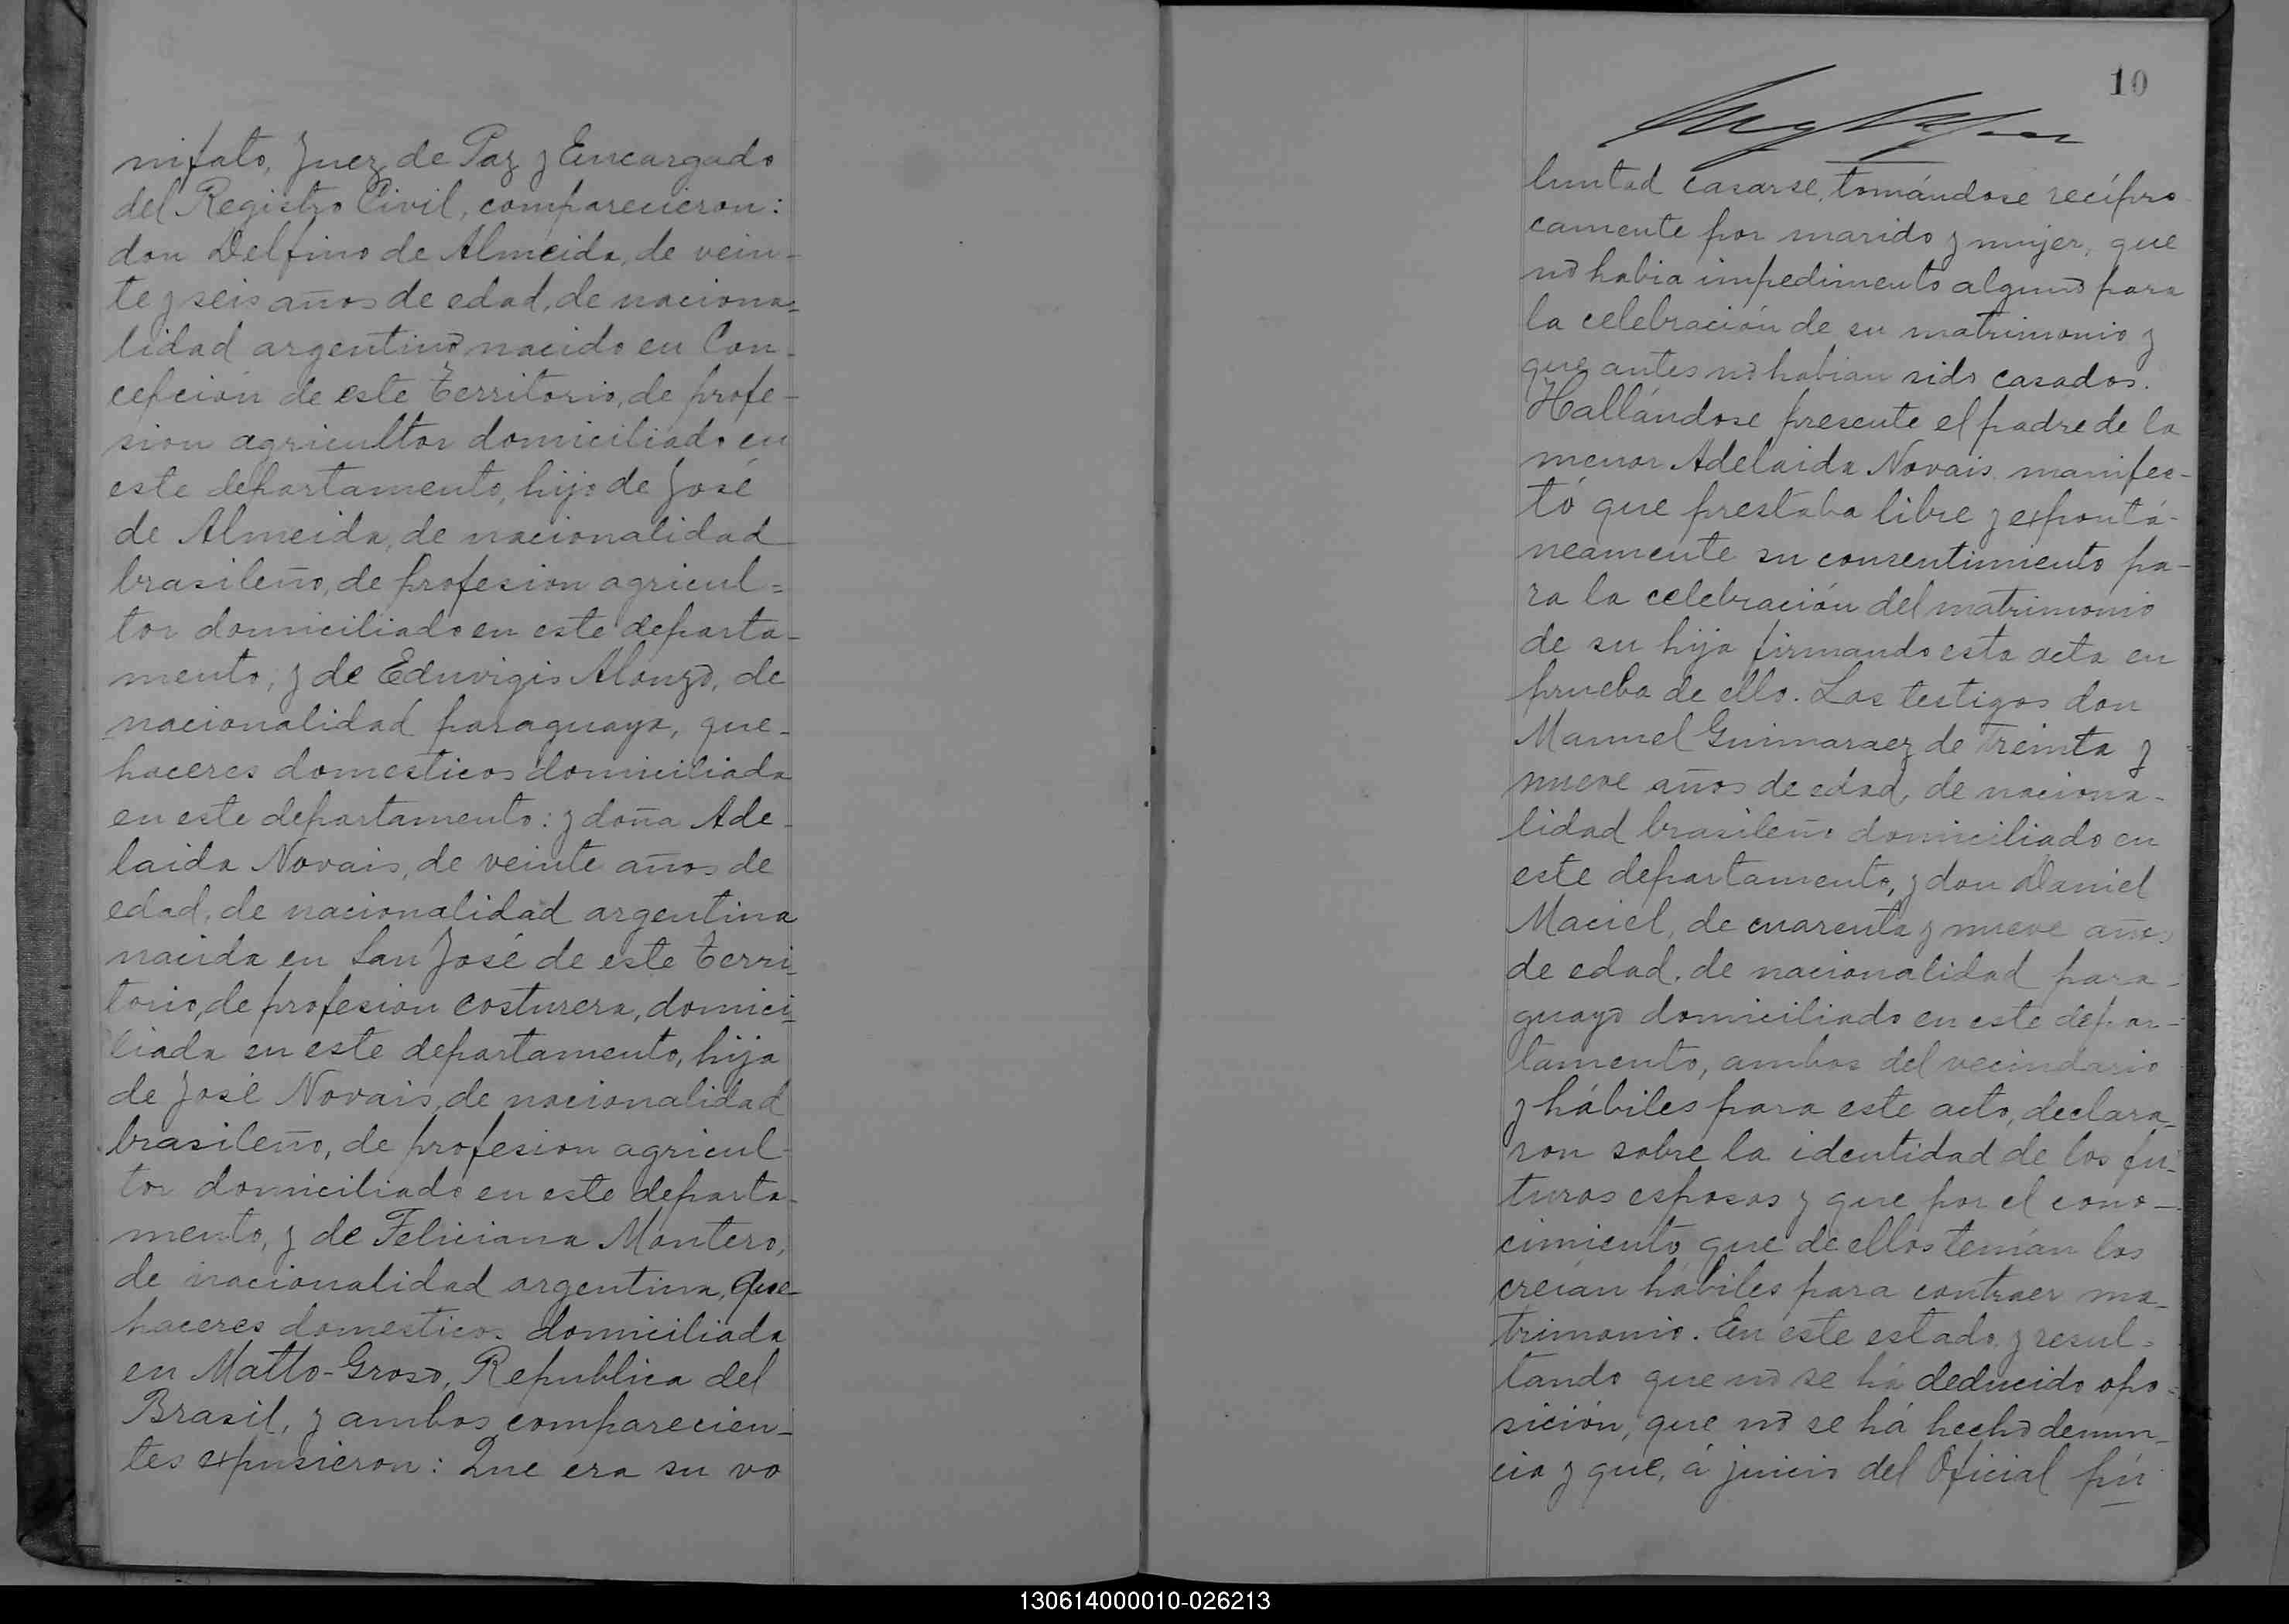 nifato, Juez de Paz y Encargado
del Registro Civil, comparecieron:
don Delfino de Almeida, de vein-
te y seis años de edad, de naciona-
lidad argentino nacido en Con-
cepción de este territorio, de profe-
sion agricultor domiciliado en
este departamento, hijo de José
de Almeida, de nacionalidad
brasileño, de profesion agricul=
tor domiciliado en este departa-
mento, y de Eduvigis Alonzo, de
nacionalidad paraguaya, que-
haceres domesticos domiciliada
en este departamento: y doña Ade-
laida Novais, de veinte años de
edad, de nacionalidad argentina
nacida en San José de este terri-
torio, de profesion costurera, domici-
liada en este departamento, hija
de José Novais, de nacionalidad
brasileño, de profesion agricul-
tor domiciliado en este departa-
mento, y de Feliciana Montero,
de nacionalidad argentina, que-
haceres domesticos domiciliada
en Matto-Groso, Republica del
Brasil, y ambos comparecien-
tes expusieron: Que era su vo
10
luntad casarse, tomándose recípro
camente por marido y mujer, que
no habia impedimento alguno para
la celebración de su matrimonio y
que antes no habian sido casados.
Hallándose presente el padre de la
menor Adelaida Novais, manifes-
tó que prestaba libre y expontá-
neamente su consentimiento pa-
ra la celebración del matrimonio
de su hija firmando esta acta en
prueba de ello. Los testigos don
Manuel Guimaraez de treinta y
nueve años de edad, de naciona-
lidad brasileño domiciliado en
este departamento, y don Daniel
Maciel, de cuarenta y nueve años
de edad, de nacionalidad para-
guayo domiciliado en este depar-
tamento, ambos del vecindario
y hábiles para este acto, declara-
ron sobre la identidad de los fu-
turos esposos y que por el cono-
cimiento que de ellos tenían los
creían hábiles para contraer ma-
trimonio. En este estado y resul=
tando que no se há deducido opo=
sición, que no se há hecho denun-
cia y que, á juicio del Oficial pú
130614000010-026213